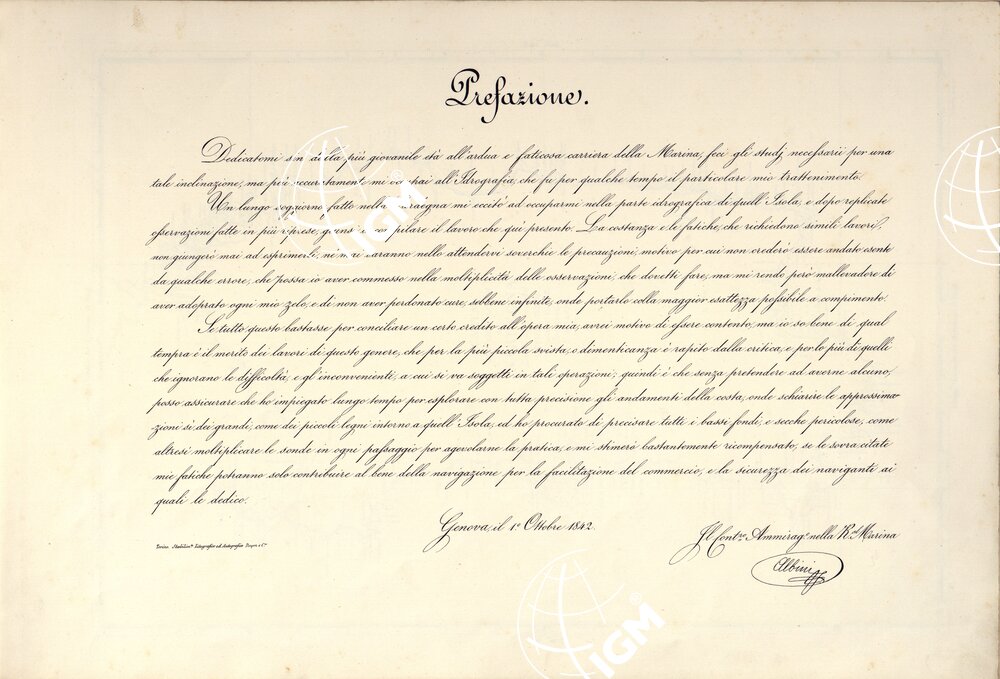 Prefazione.
Dedicatomi sin dalla più giovanile età all'ardua e faticosa carriera della Marina, feci gli studj necessarii per una
tale inclinazione, ma più accuratamente mi occupai all'Idrografia, che fu per qualche tempo il particolare mio trattenimento.
Un lungo soggiorno fatto nella Sardegna mi eccitò ad occuparmi nella parte idrografica di quell'Isola, e dopo replicate
osservazioni fatte in più riprese, giunsi a compilare il lavoro che qui presento. La costanza e le fatiche, che richiedono simili lavori,
non giungerò mai ad esprimerle, ne mai saranno nello attendervi soverchie le precauzioni; motivo per cui non crederò essere andato esente
da qualche errore, che possa io aver commesso nella moltiplicità delle osservazioni, che dovetti fare, ma mi rendo però mallevadore di
aver adoprato ogni mio zelo, e di non aver perdonato cure, sebbene infinite, onde portarlo colla maggior esattezza possibile a compimento.
Se tutto questo bastasse per conciliare un certo credito all'opera mia, avrei motivo di essere contento, ma io so bene di qual
tempra è il merito dei lavori di questo genere, che per la più piccola svista, o dimenticanza è rapito dalla critica, e per lo più di quelli
che ignorano le difficoltà, e gl'inconvenienti, a cui si va soggetti in tali operazioni; quindi è che senza pretendere ad averne alcuno,
posso assicurare che ho impiegato lungo tempo per esplorare con tutta precisione gli andamenti della costa, onde schiarire le approssima-
zioni sì dei grandi, come dei piccoli legni intorno a quell'Isola, ed ho procurato di precisare tutti i bassi fondi, e secche pericolose, come
altresì moltiplicare le sonde in ogni passaggio per agevolarne la pratica, e mi stimerò bastantemente ricompensato, se le sovra citate
mie fatiche potranno solo contribuire al bene della navigazione per la facilitazione del commercio, e la sicurezza dei naviganti ai
quali le dedico.
Genova, il 1º Ottobre 1842.
Torino Stabilimto Litografico ed Autografico Doyen e Ca.
Il Contre Ammirage nella Rl Marina
Albini
IGM
IGM